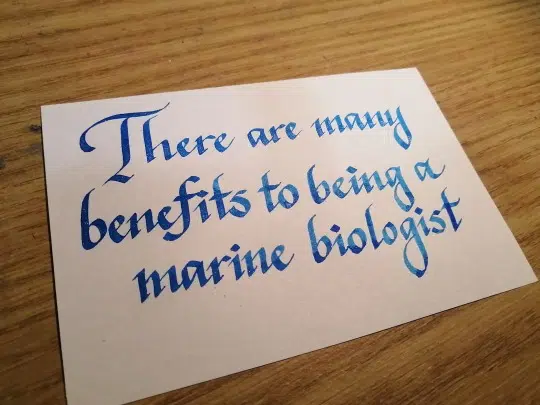 There are many
benefits to being a
marine biologist